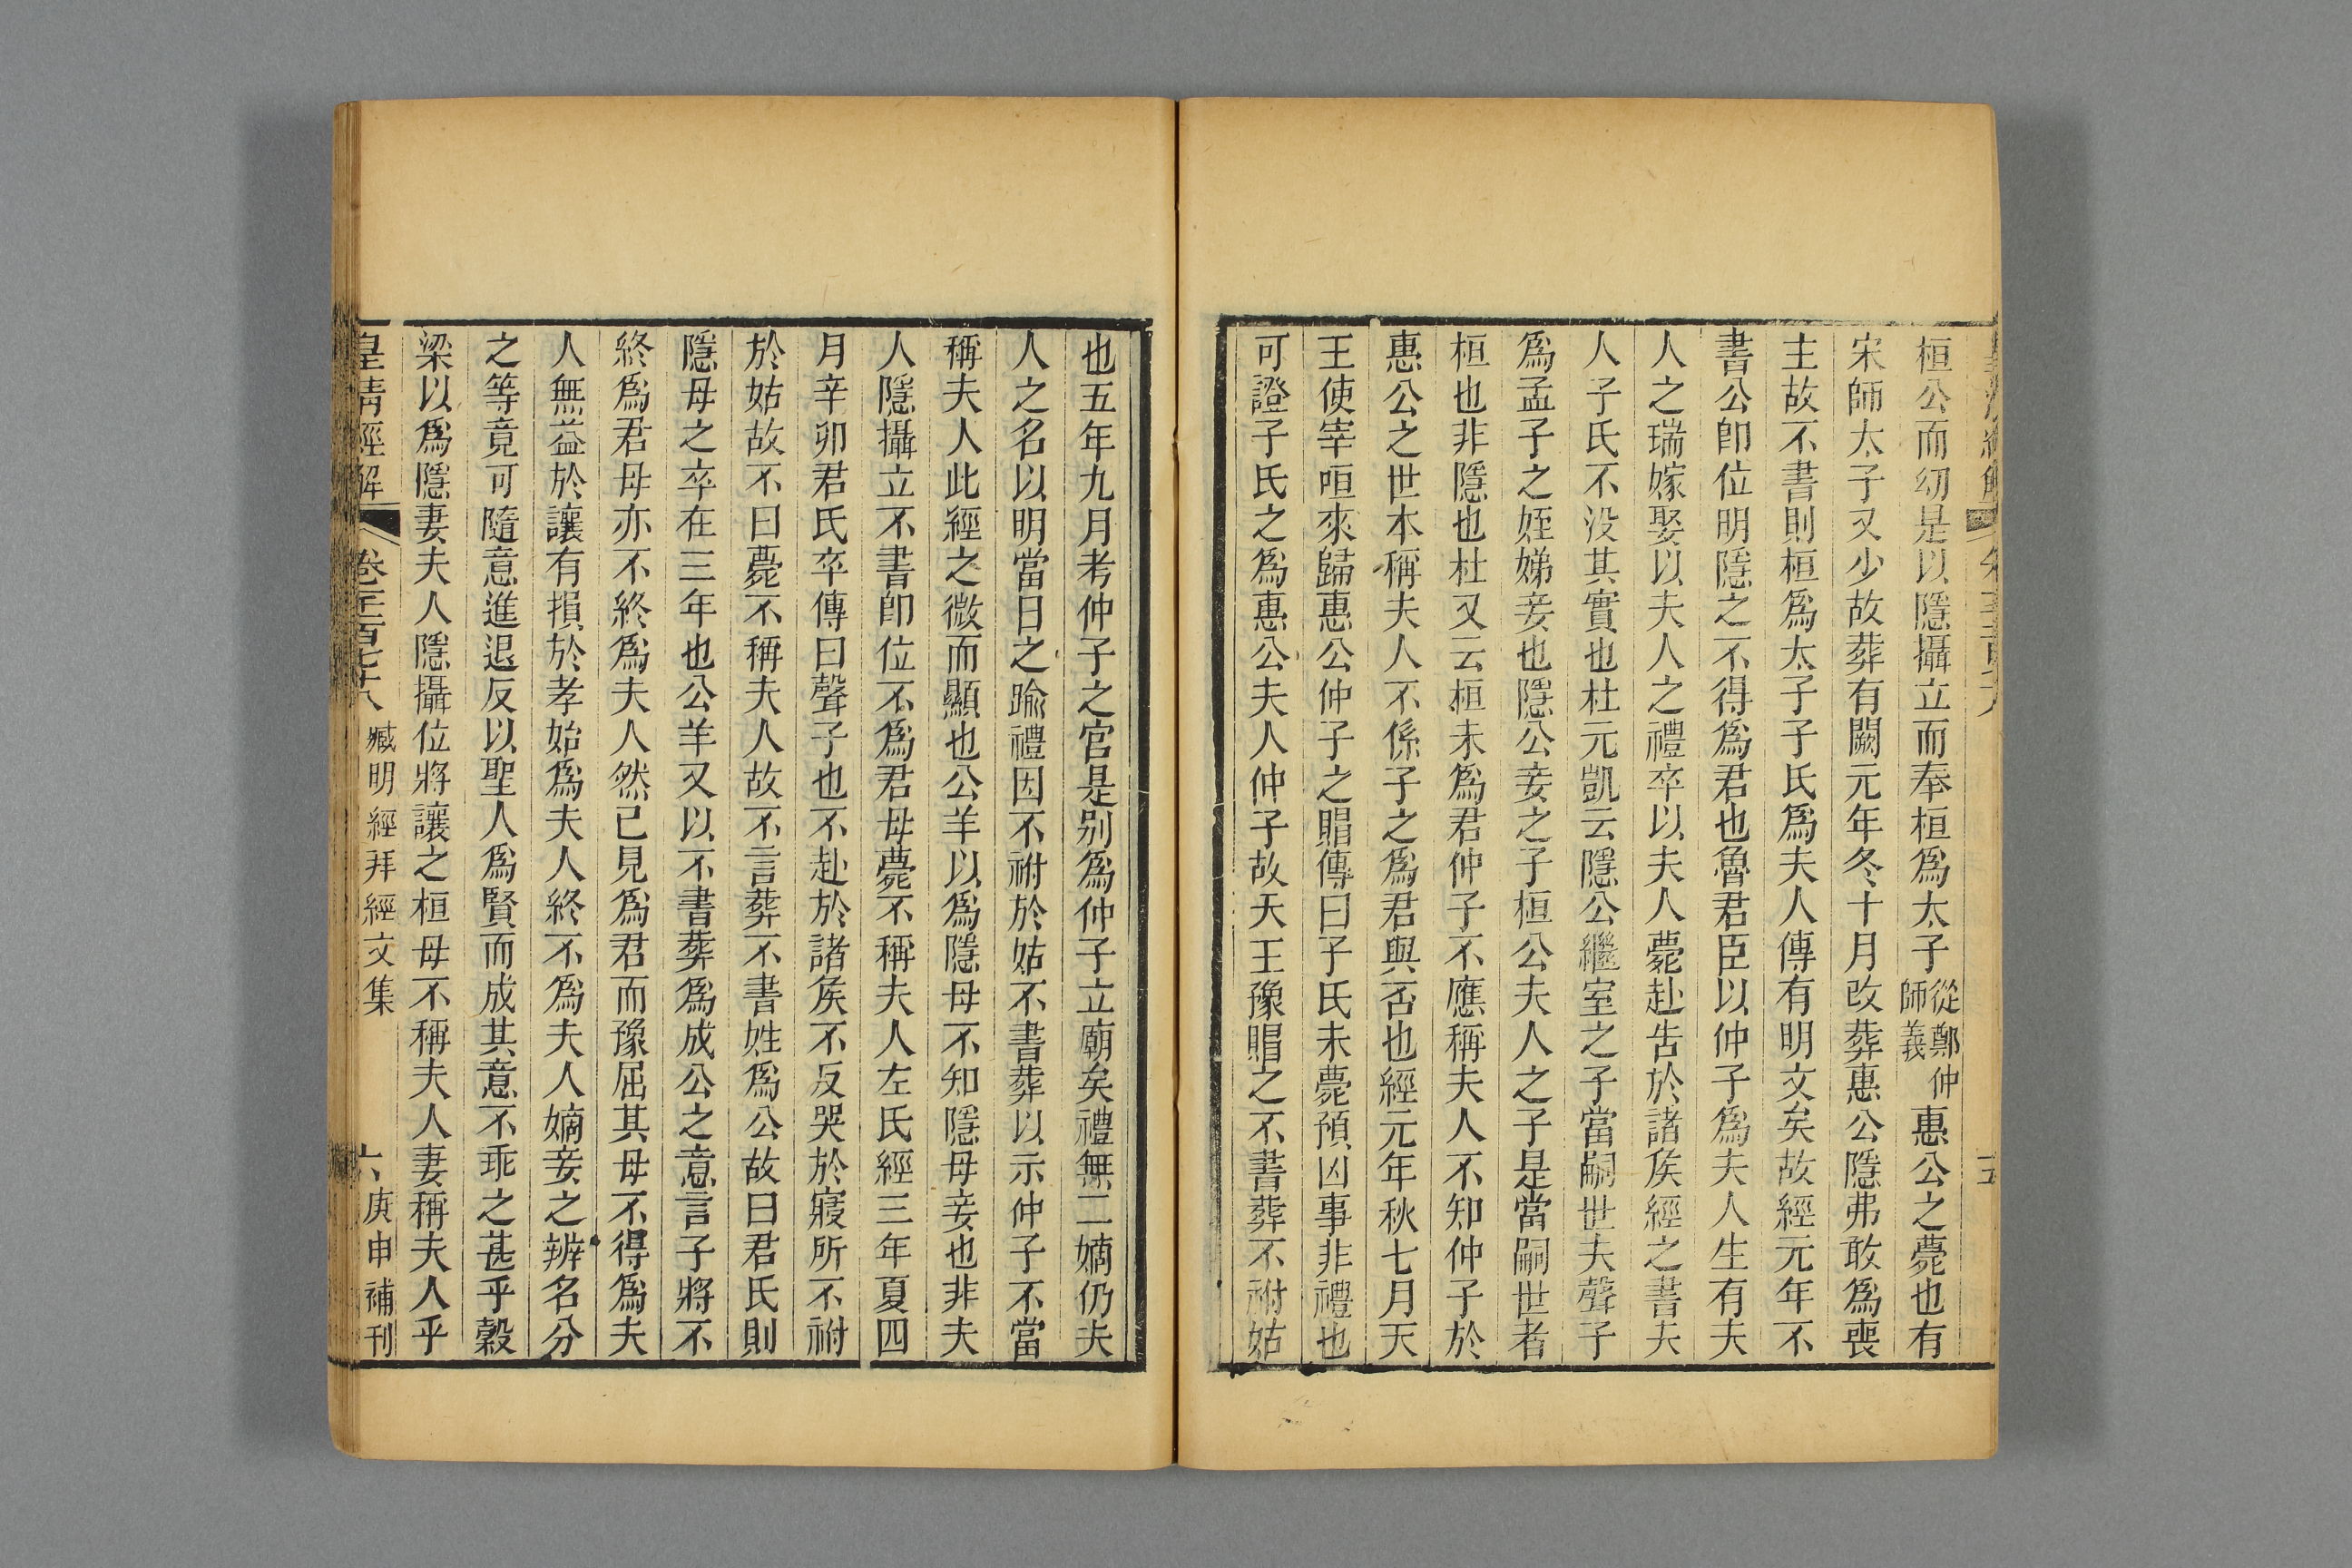 桓公而幼是以隱攝立而奉桓爲太子從鄭仲師義惠公之薨也有
宋師太子又少故葬有闕元年冬十月改葬惠公隱弗敢爲喪
主故不書則桓爲太子子氏爲夫人傳有明文矣故經元年不
書公卽位明隱之不得爲君也魯君臣以仲子爲夫人生有夫
人之瑞嫁娶以夫人之禮卒以夫人薨赴告於諸矦經之書夫
人子氏不没其實也杜元凱云隱公繼室之子當嗣世夫聲子
爲孟子之姪娣妾也隱公妾之子桓公夫人之子是當嗣世者
桓也非隱也杜又云桓未爲君仲子不應稱夫人不知仲子於
惠公之世本稱夫人不係子之爲君與否也經元年秋七月天
王使宰咺來歸惠公仲子之賵傳曰子氏未薨預凶事非禮也
可證子氏之爲惠公夫人仲子故天王豫賵之不書葬不祔姑
也五年九月考仲子之宮是别爲仲子立廟矣禮無二嫡仍夫
人之名以明當日之踰禮因不祔於姑不書葬以示仲子不當
稱夫人此經之微而顯也公羊以爲隱母不知隱母妾也非夫
人隱攝立不書卽位不爲君母薨不稱夫人左氏經三年夏四
月辛卯君氏卒傳曰聲子也不赴於諸矦不反哭於寢所不祔
於姑故不曰薨不稱夫人故不言葬不書姓爲公故曰君氏則
隱母之卒在三年也公羊又以不書葬爲成公之意言子將不
終爲君母亦不終爲夫人然已見爲君而豫屈其母不得爲夫
人無益於讓有損於孝始爲夫人終不爲夫人嫡妾之辨名分
之等竟可隨意進退反以聖人爲賢而成其意不乖之甚乎穀
梁以爲隱妻夫人隱攝位將讓之桓母不稱夫人妻稱夫人乎
皇清經解 卷一千一百七十八 臧明經拜經文集 六 庚申補刊